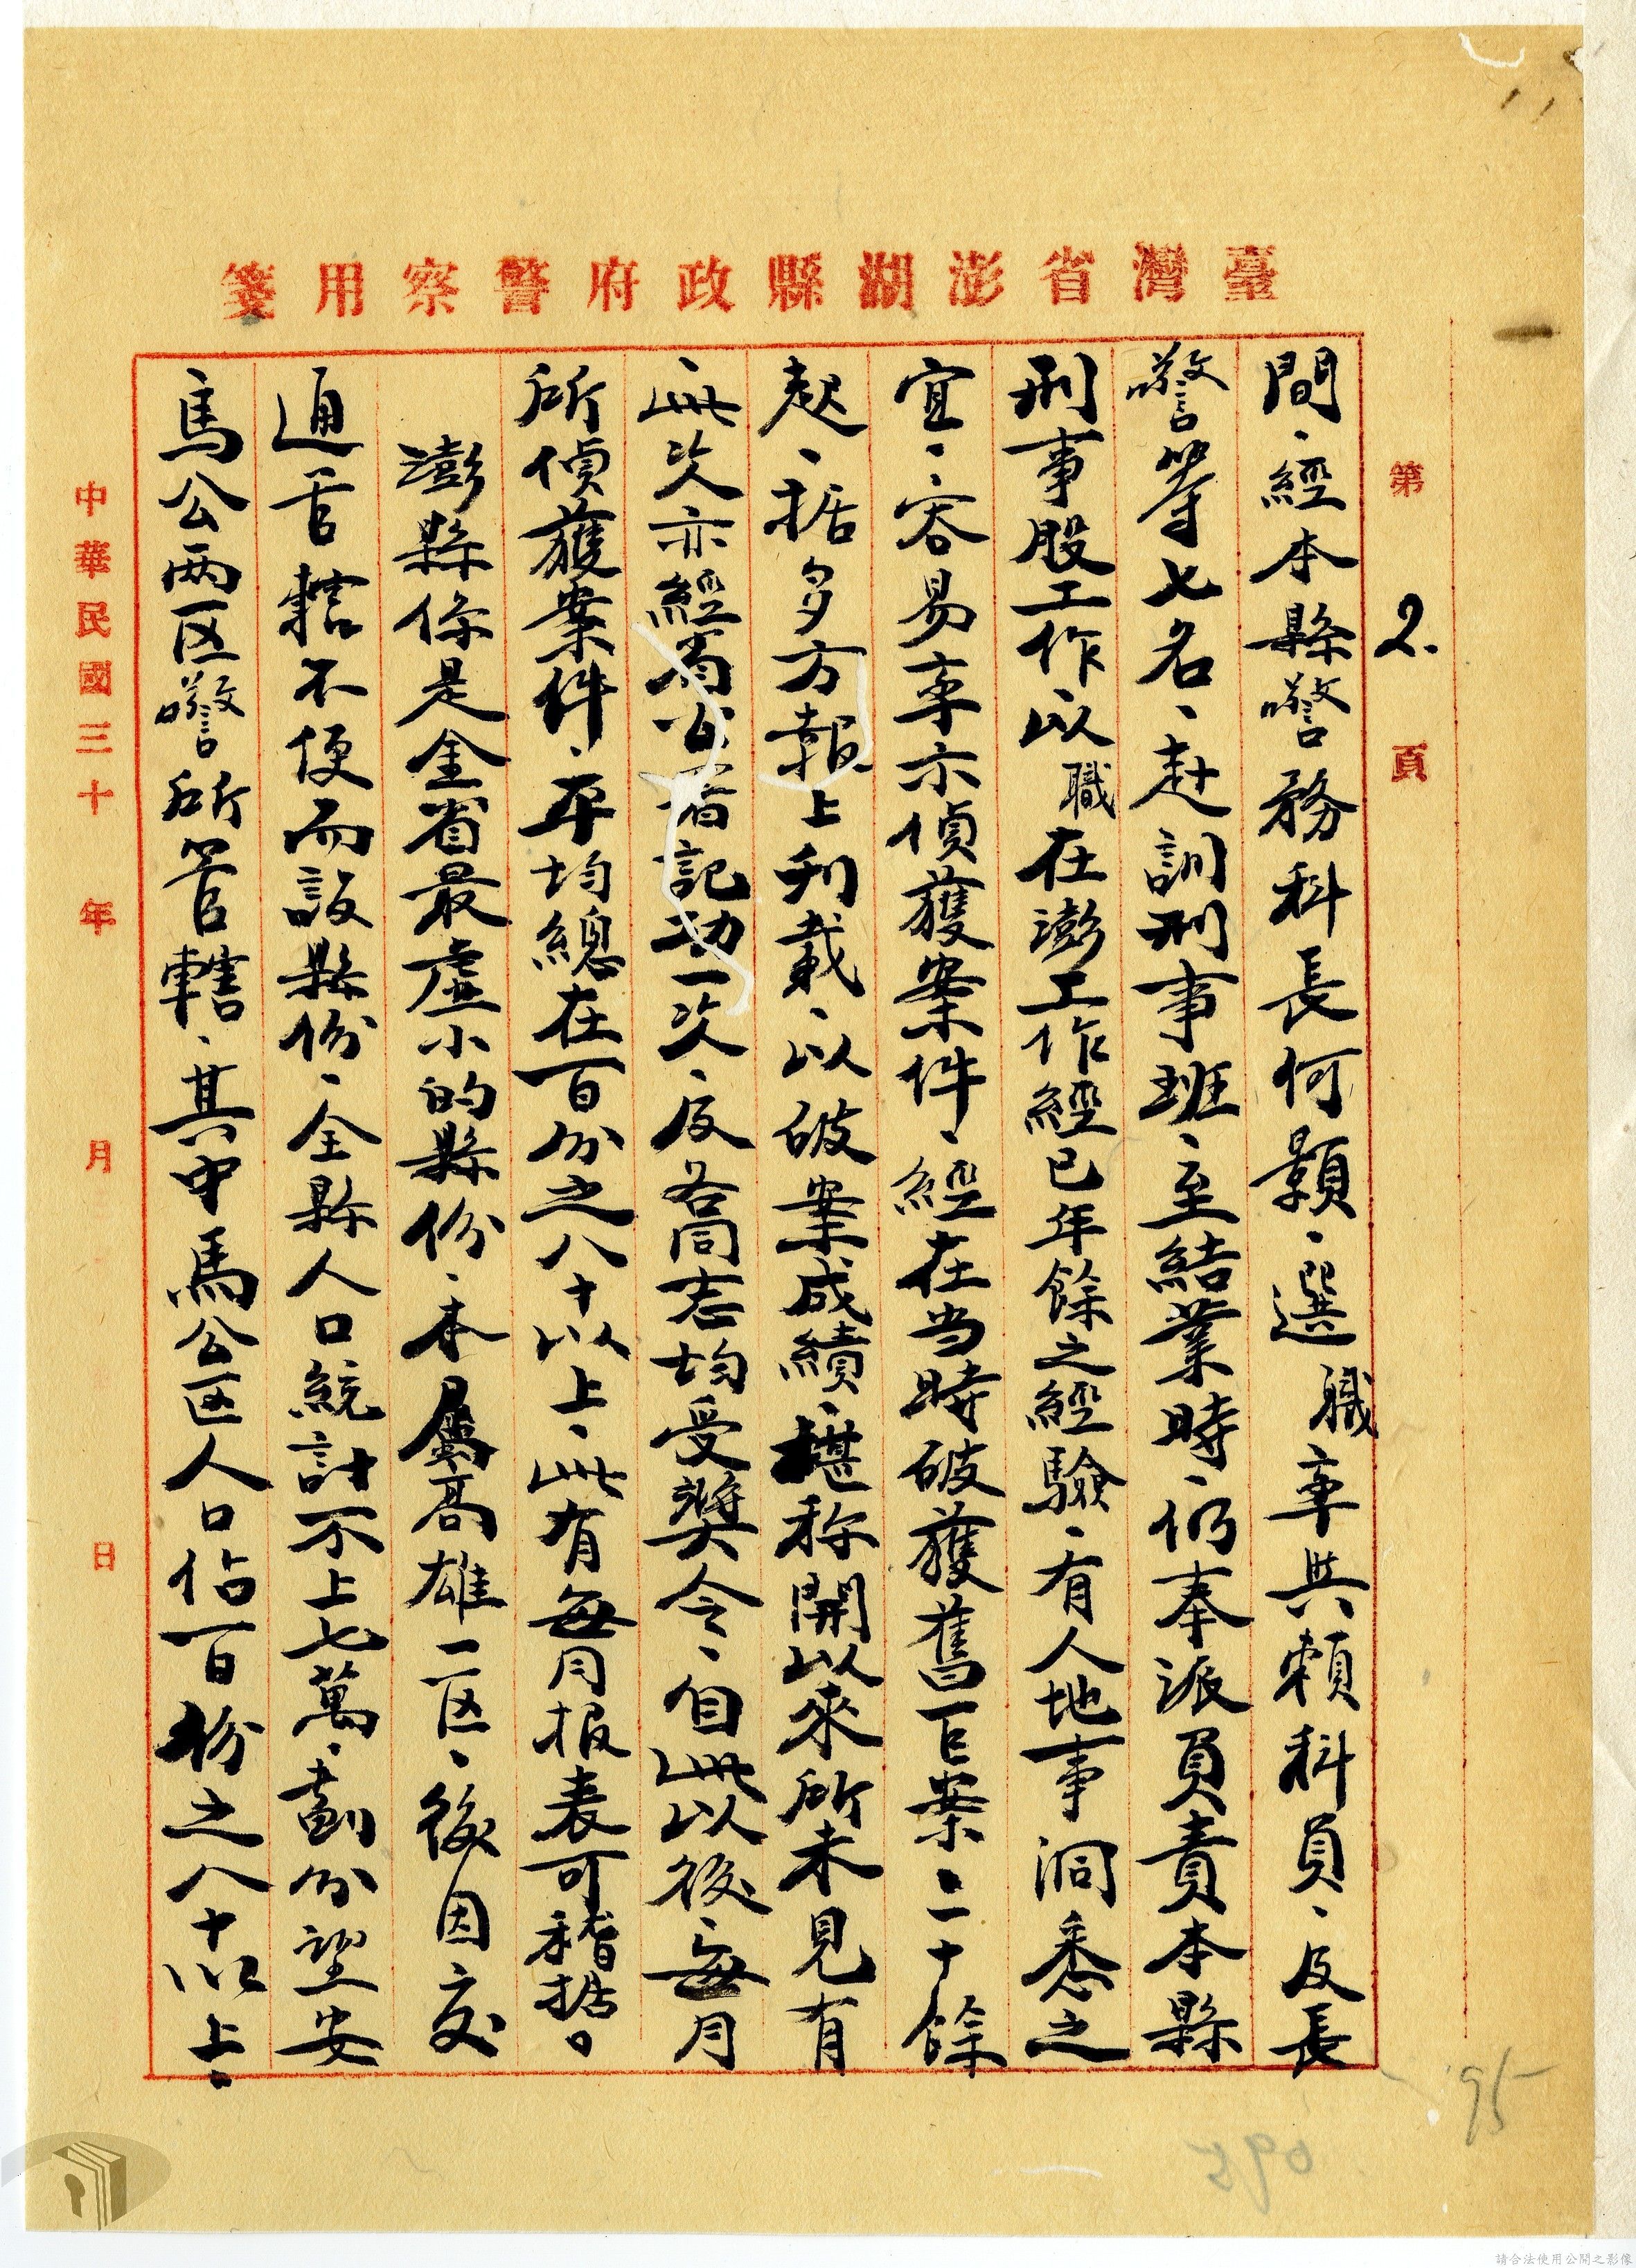 臺灣省澎湖縣政府警察用箋
第2.頁
間、經本縣警務科長何顥、選職率與賴科員、及長
警等七名、赴訓刑事班、至結業時、仍奉派員責本縣
刑事股工作以職在澎工作經已年餘之經驗、有人地事洞悉之
宜、容易率示偵獲案件、經在当時破獲舊巨案二十餘
起、据多方報上刋載、以破案成績、堪称開以來所未見有
此次亦經省公署記功一次、及各同志均受奬令、自此以後、每月
所偵獲案件、平均總在百份之八十以上、此有每月报表可稽據。
澎縣係是全省最虛小的縣份、本屬高雄一区、後因交
通管轄不便而設縣份、全縣人口統計不上七萬、劃分望安
馬公两区警所管轄、其中馬公区人口佔百份之八十以上、
中華民國三十年月日
95
590
請合法使用公開之影像